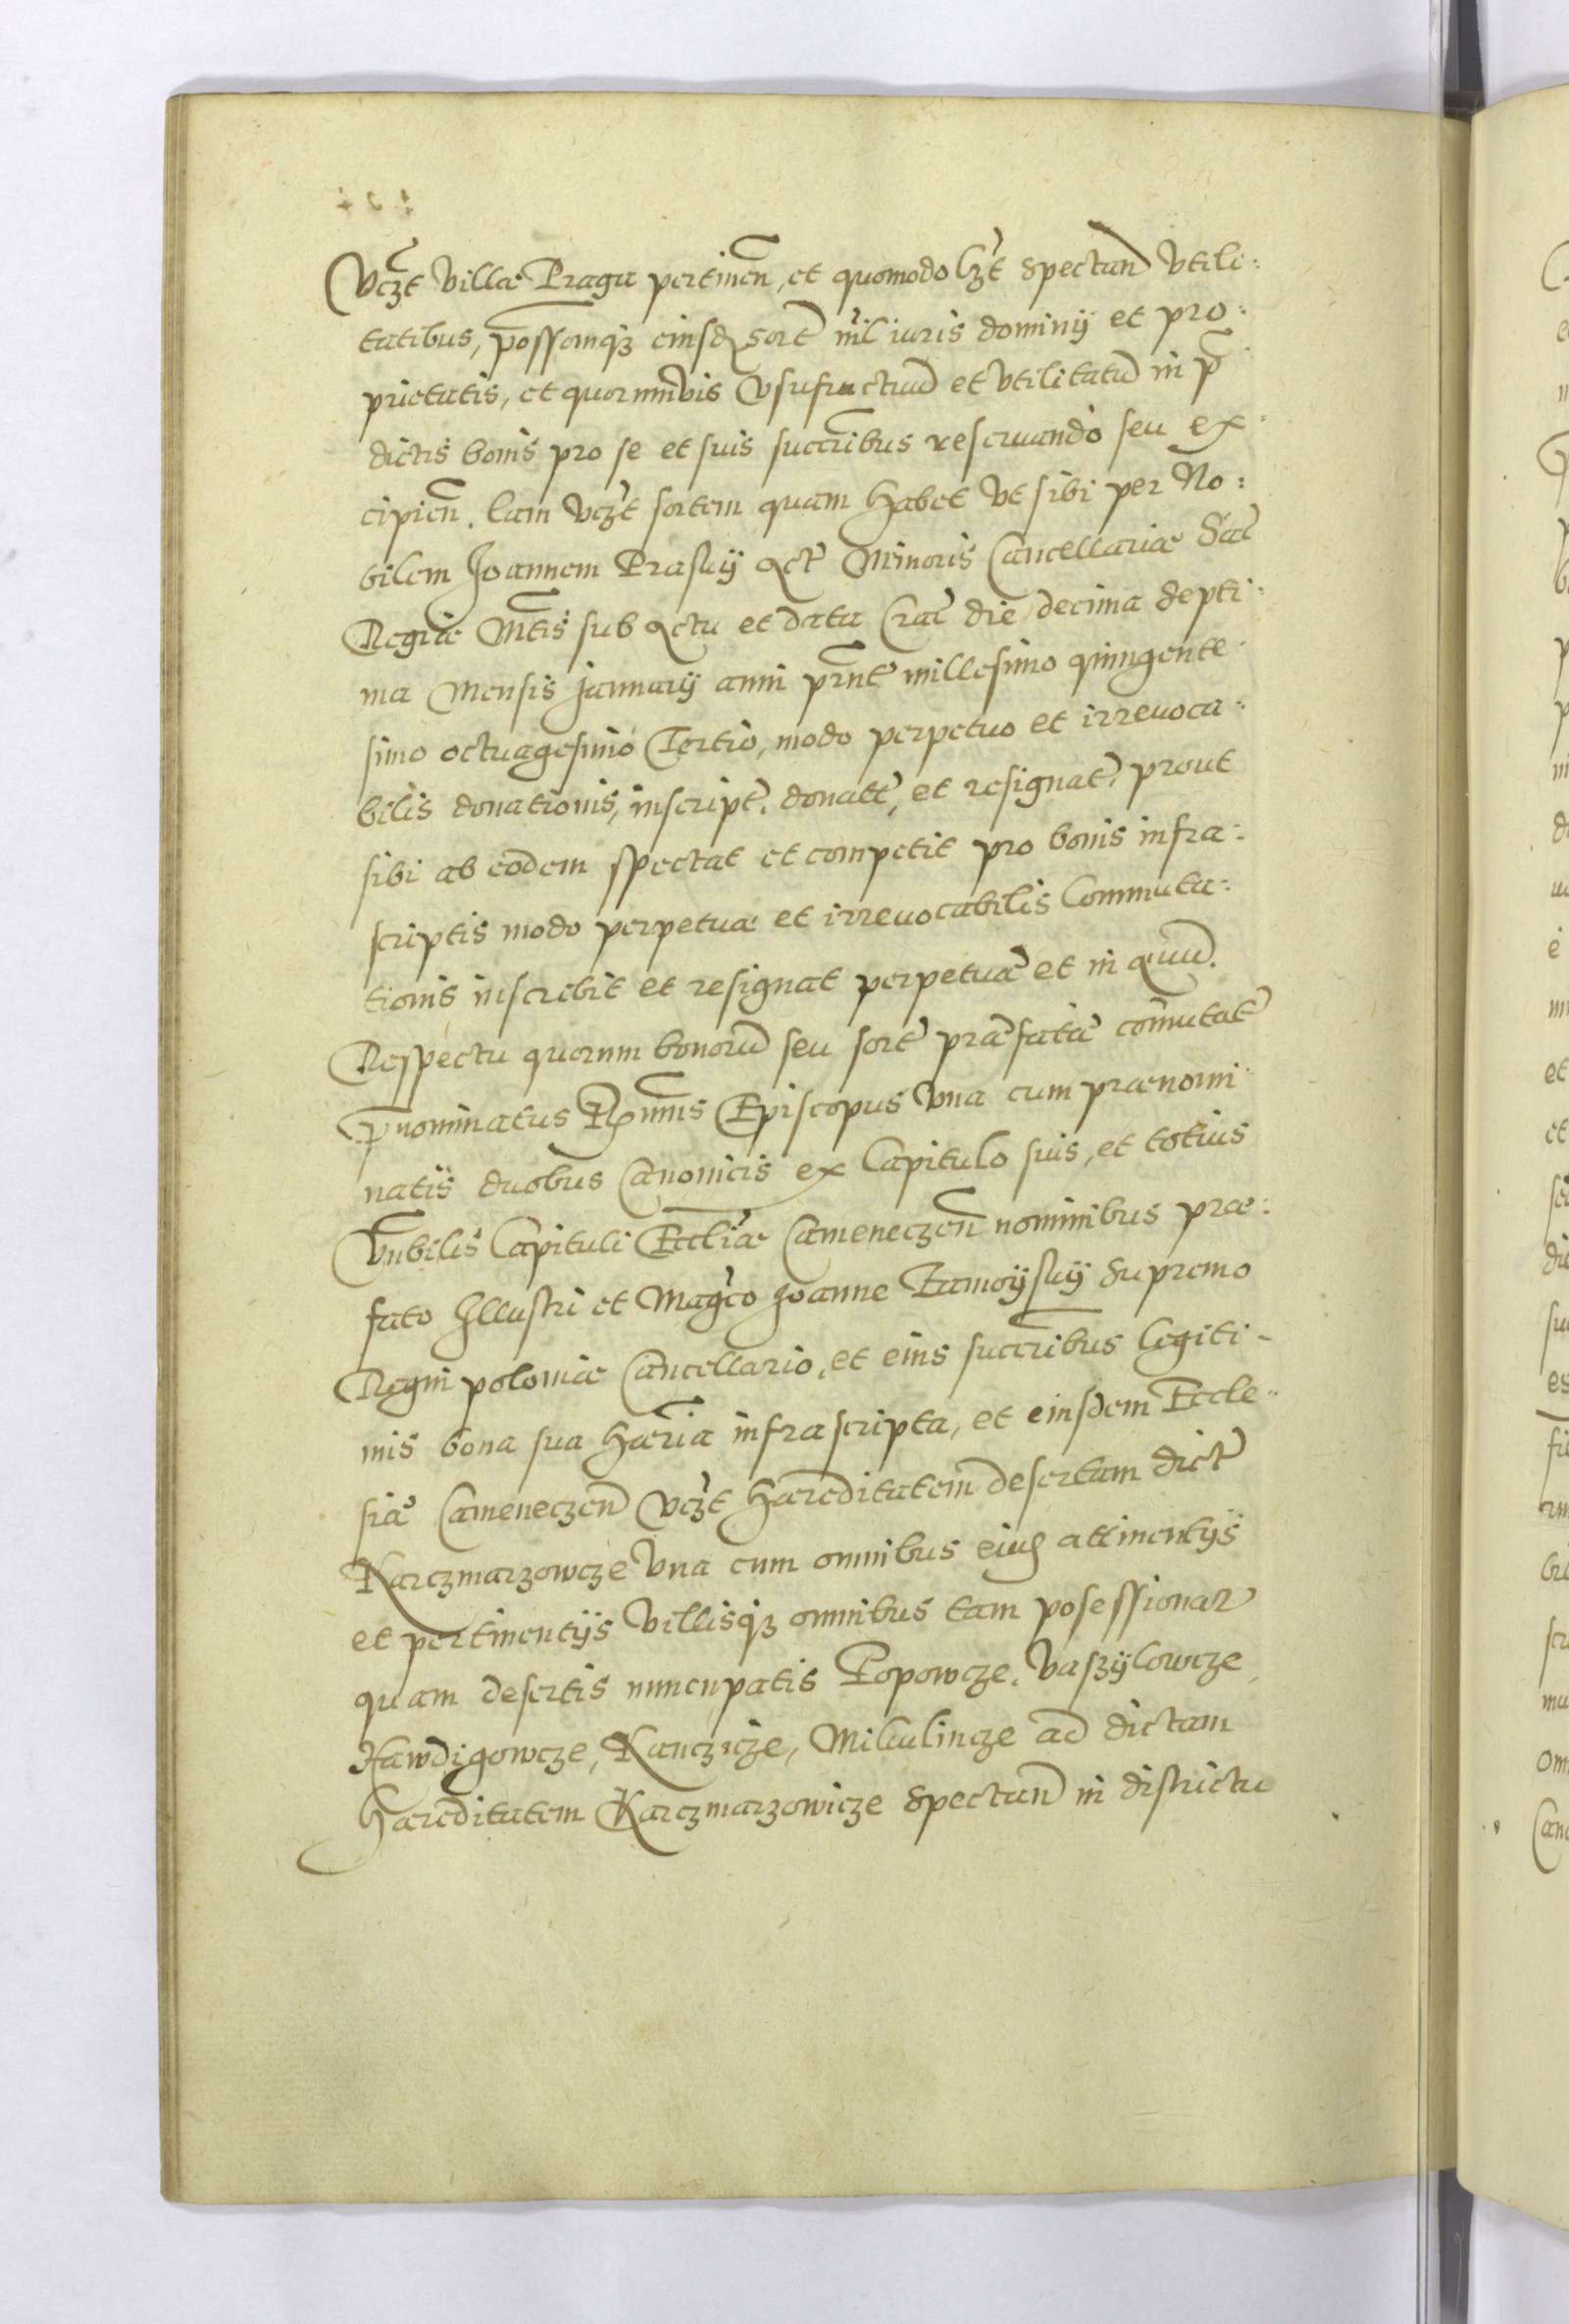 Vczt villae Praga pertinen, et quomodolzt spectan vtili:
tatibus, possonqz eiusdz sort nil iuris dominij et pro:
prietatis, et quorumvis vsufructuu et vtilitatu in p
dictis bonis pro se et suis succribus reseruando seu ex:
cipien. Eam vczt sortem quam habet vt sibi per No:
bilem Joannem Prasky Act Minoris Cancellariae Sac
Regiae Mtis sub Actu et data Crac die decima septi:
ma Mensis Januarij anni prnt millesimo quingente:
simo octuagesimo Tertio, modo perpetuo et irreuoca:
bilis donationis, inscript. donatt, et resignat, prout
sibi ab eodem spectat et competit pro bonis infra:
scriptis modo perpetuae et irreuocabilis Commuta:
tionis inscribit et resignat perpetuae et in aeuu.
Respectu quorum bonoru seu sort praefatae comutat
pnominatus Rxmus Episcopus vna cum praenomi
natis duobus Canonicis ex Capitulo suis, et totius
Vnbilis Capituli Eccliae Cameneczen nominibus prae:
fato Illustri et Magco Joanne Zamoysky Supremo
Regni poloniae Cancellario, et eius succribus legiti-
mis bona sua haeria infrascripta, et eiusdem Eccle:
siae Cameneczen vczt haereditatem desertam dict
Karczmarzowcze vna cum omnibus eius attinentijs
et pertinentijs villisqz omnibus tam posessionat
quam desertis nuncupatis Popowcze, Vaszylowcze,
Hawdigowcze, Kanczicze, Mikulincze ad dictam
Haereditatem Karczmarzowicze spectan in districtu